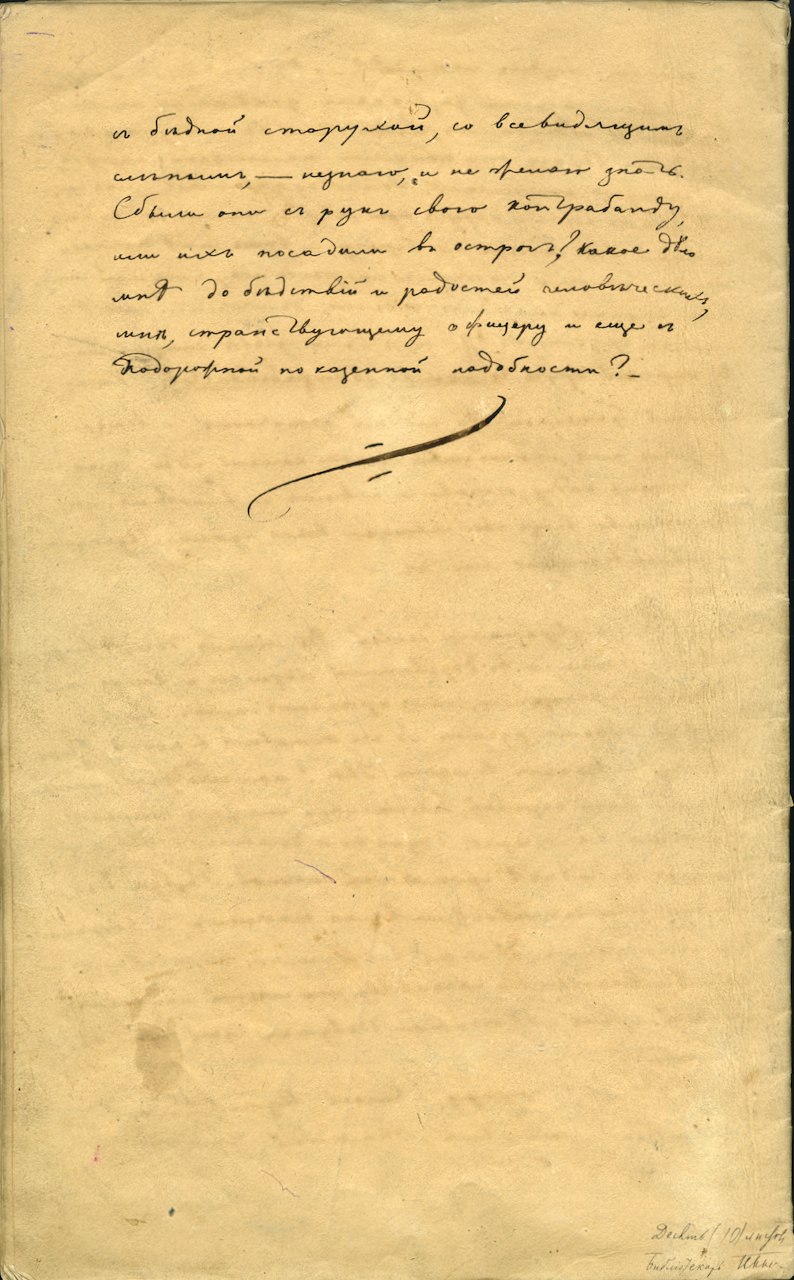 съ бѣдной старухой, со всевидящимъ
слѣпымъ, — незнаю, и не желаю знать.
Сбыли они съ рукъ свою контрабанду,
или ихъ посадили въ острогъ? какое дѣло
мнѣ до бѣдствій и радостей человѣческихъ,
мнѣ, странствующему офицеру и еще съ
Подорожной по казенной надобности? —
Десять (10) листовъ
Библіотекарь